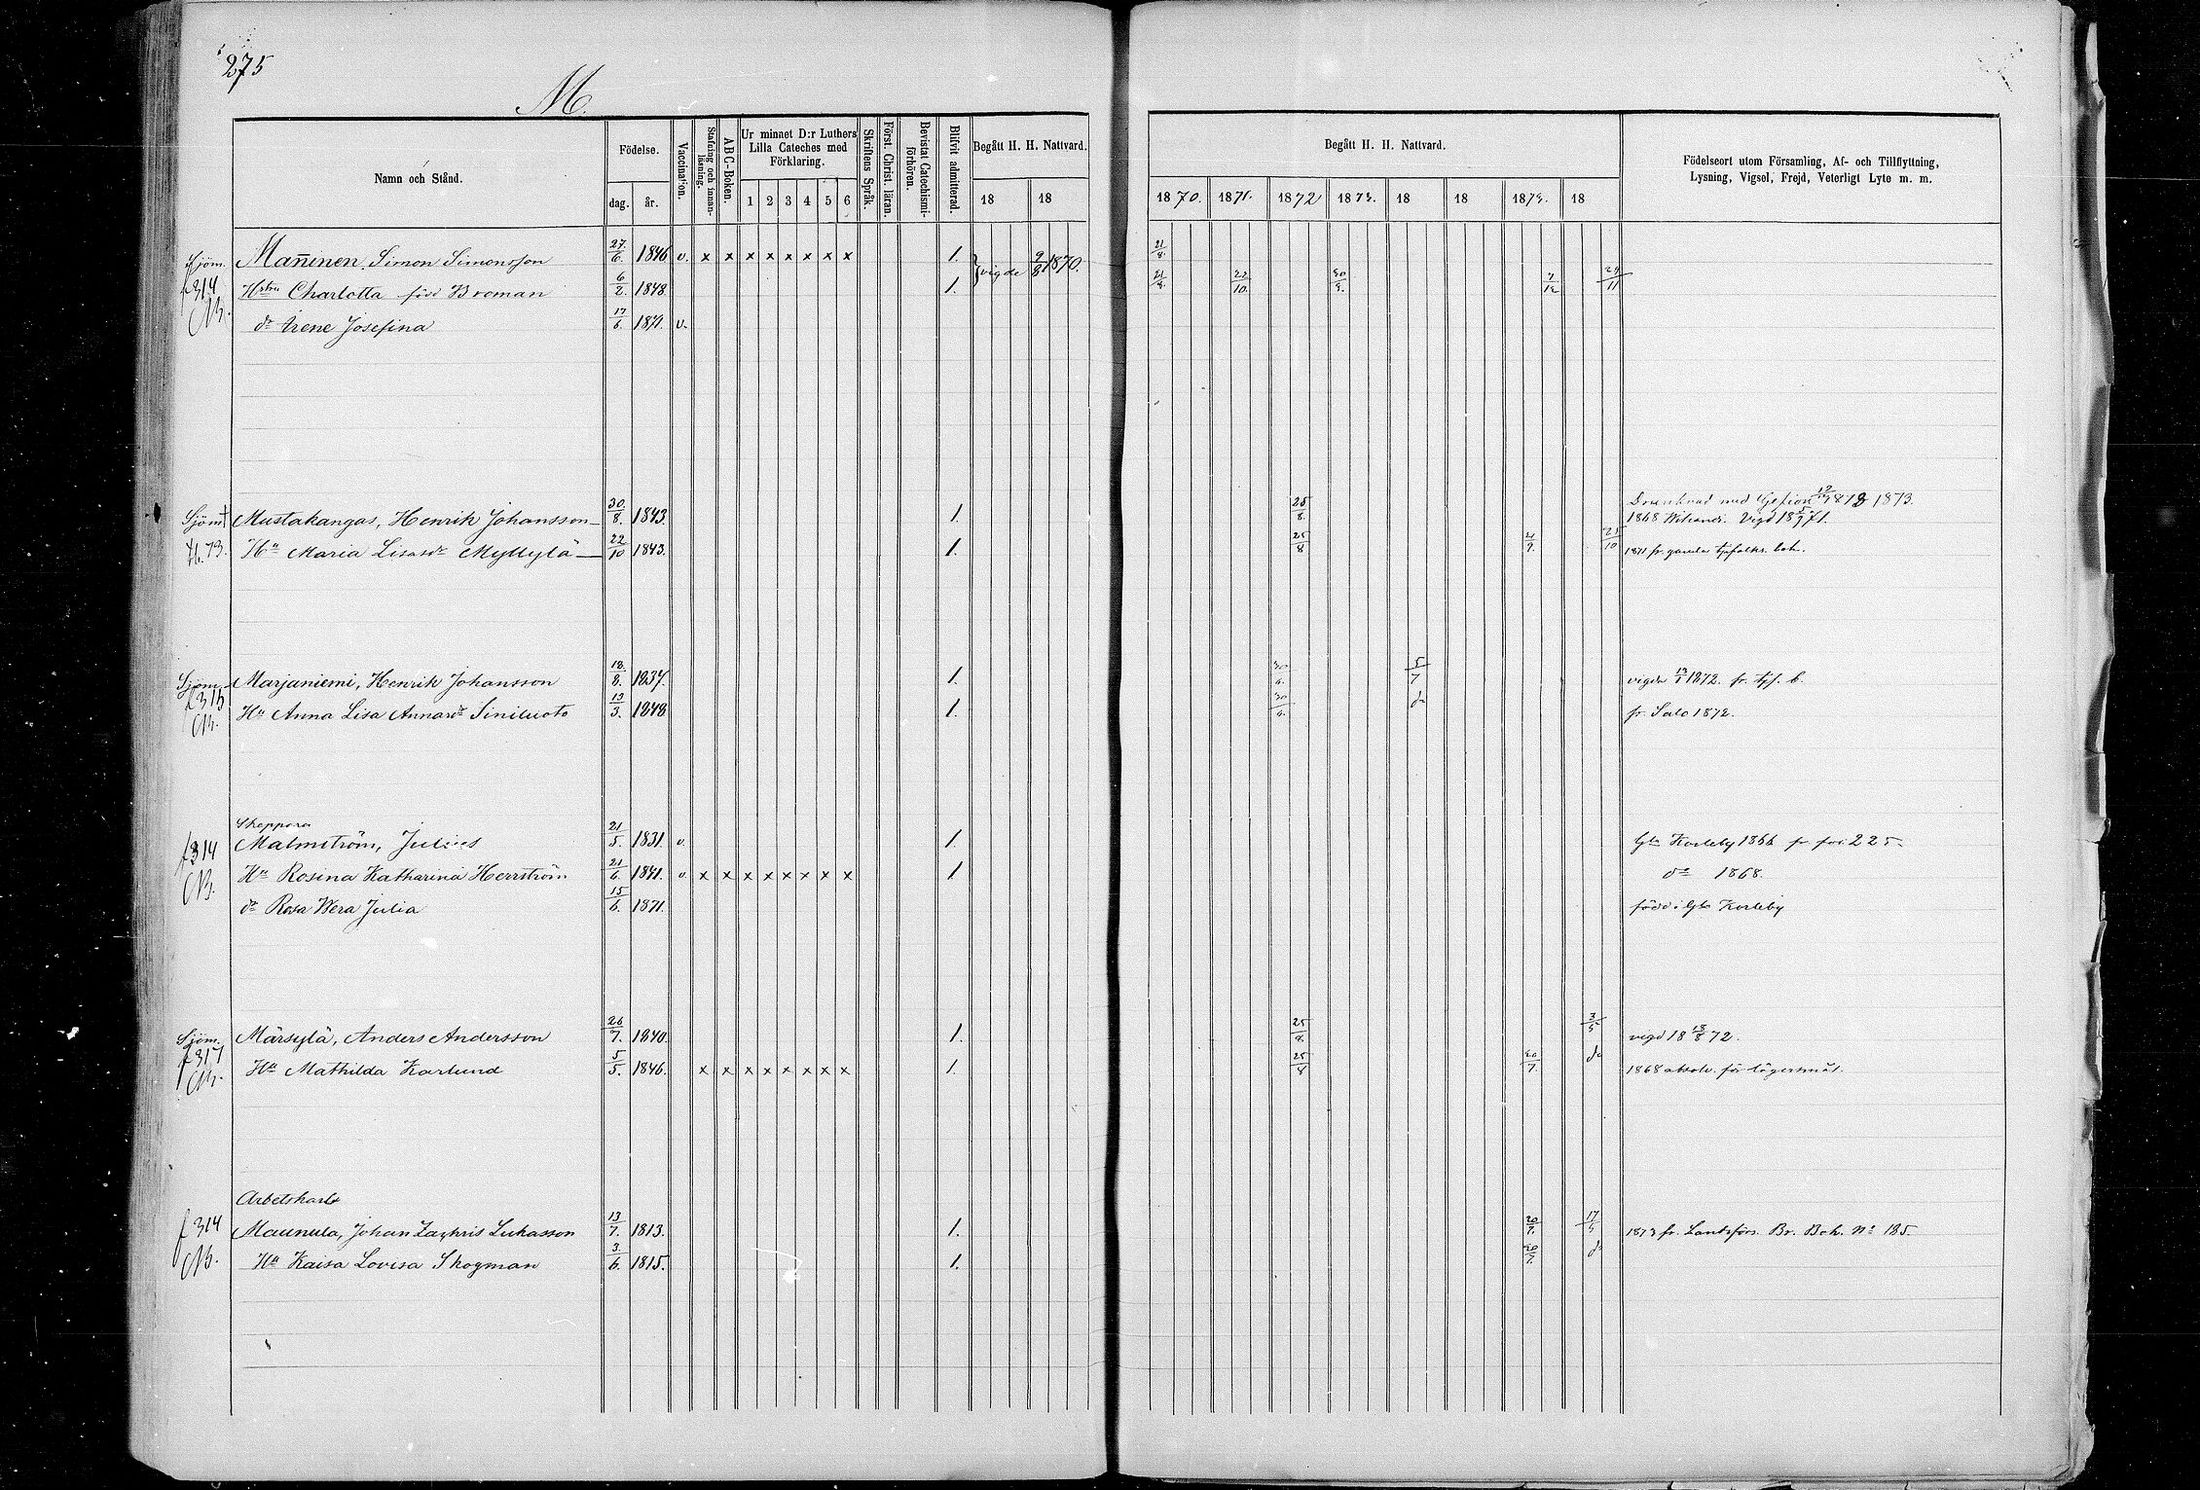 275
M.
Namn och Stånd.
Födelse.
dag.
år.
Vaccination.
Stafning och innanläsning.
ABC-Boken.
Ur minnet D:r Luthers Lilla Cateches med Förklaring.
1 2 3 4 5 6
Skriftens Språk.
Först. Christ. läran.
Bevistat Catechismiförhören.
Blifvit admitterad.
Begått H. H. Nattvard.
18 18
Begått H. H. Nattvard.
1870. 1871. 1872 1873. 18 18 1873. 18
Födelseort utom Församling, Af- och Tillflyttning,
Lysning, Vigsel, Frejd, Veterligt Lyte m. m.
Sjöm. Manninen, Simon Simonsson 27/6. 1846 v. x x x x x x x x 1. vigde 9/8 1870. 21/8.
f 314 Hstru Charlotta född Broman 6/2. 1848. 1. 21/8. 22/10. 7/12 24/11
dr Irene Josefina 17/6. 1871. v.
Sjöm † Mustakangas, Henrik Johansson 30./8. 1843. 1. 25/8. med Gefion 1873.
1868 Vigd 18 71.
Hu Maria Lisasdr Myllylä 22/10 1843. 1. 25/8 21/9. 25/10 1871 fr. gamla
Sjöm. Marjaniemi, Henrik Johansson 18./8. 1837. 1. 30/6. 5/7 vigda 13/1 1872. fr. tjf. b.
f. 315 Hu Anna Lisa Annasdr Siniluoto 13/3. 1848 1. 30/6. do fr. Salo 1872.
Skeppare
f 314 Malmström, Julius 21/5. 1831. v. 1. Gla Karleby 1866 fr fol 225.
Hu Rosina Katharina Herrström 21/6. 1841. v. x x x x x x x x 1 do 1868.
dr Rosa Wera Julia 15/6. 1871. född i Gla Karleby
Sjöm. Märsylä, Anders Andersson 26/7. 1840. 1. 25/8. 3/5 vigd 18 13/8 72.
f 317 Hu Mathilda Karlund 5/5. 1846. x x x x x x x x 1. 25/8 20/7. do 1868 absolv. för lägersmål.
Arbetskarl
f 314 Maunula, Johan Zachris Lukasson 13/7. 1813. 1. 20/9. 17/5 1873 fr. Landsförs. Br. Bok. No 185.
Hu Kaisa Lovisa Skogman 3./6. 1815. 1. 20/9. do